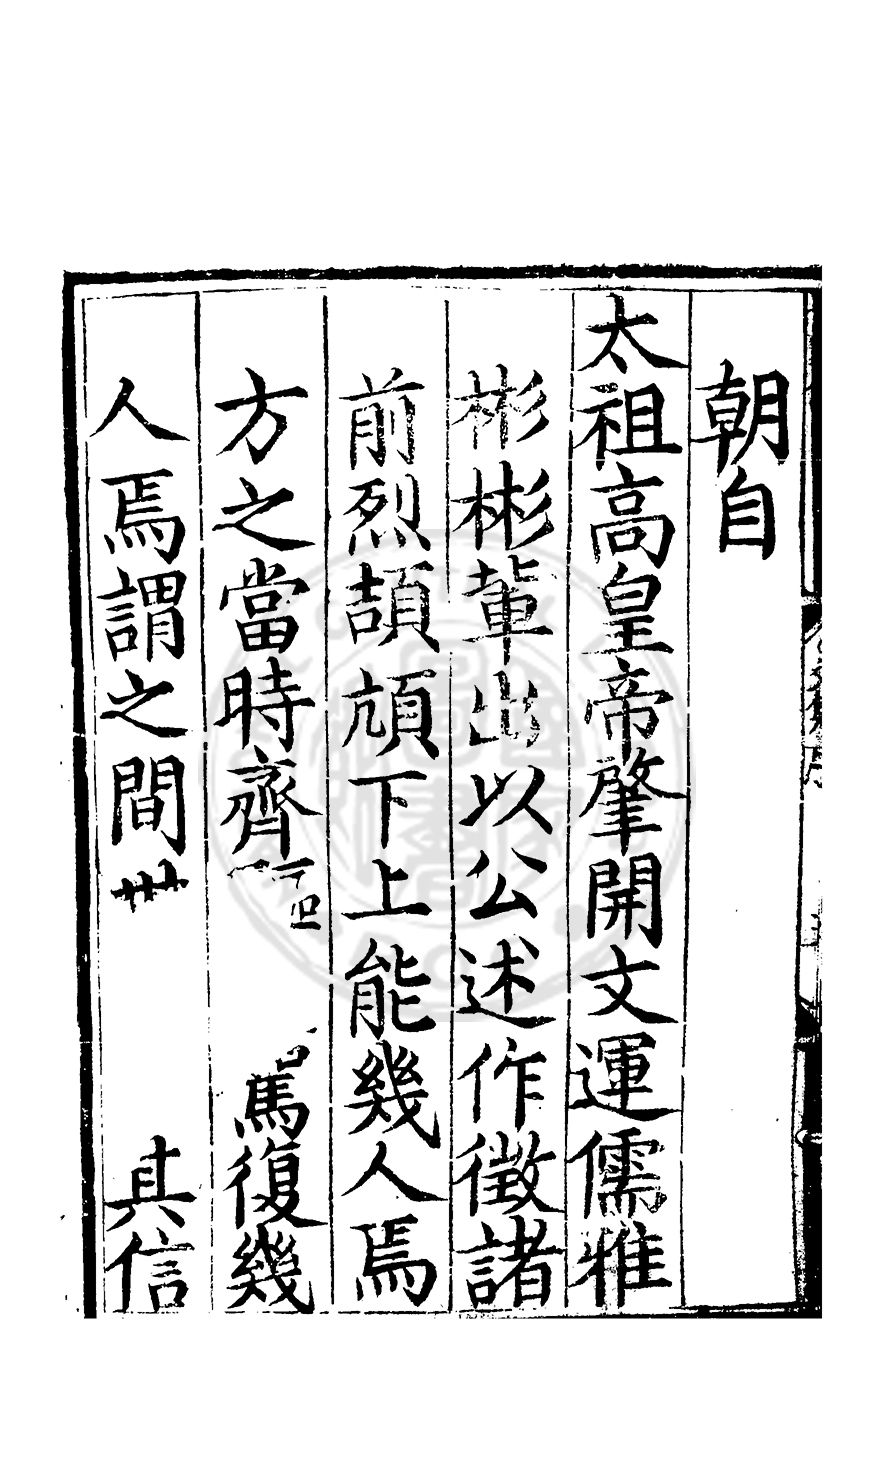 朝自
太祖高皇帝肇開文運儒雅
彬彬輩出以公述作徵諸
前烈頡頏下上能幾人焉
方之當時齊馬復幾
人焉謂之間其信